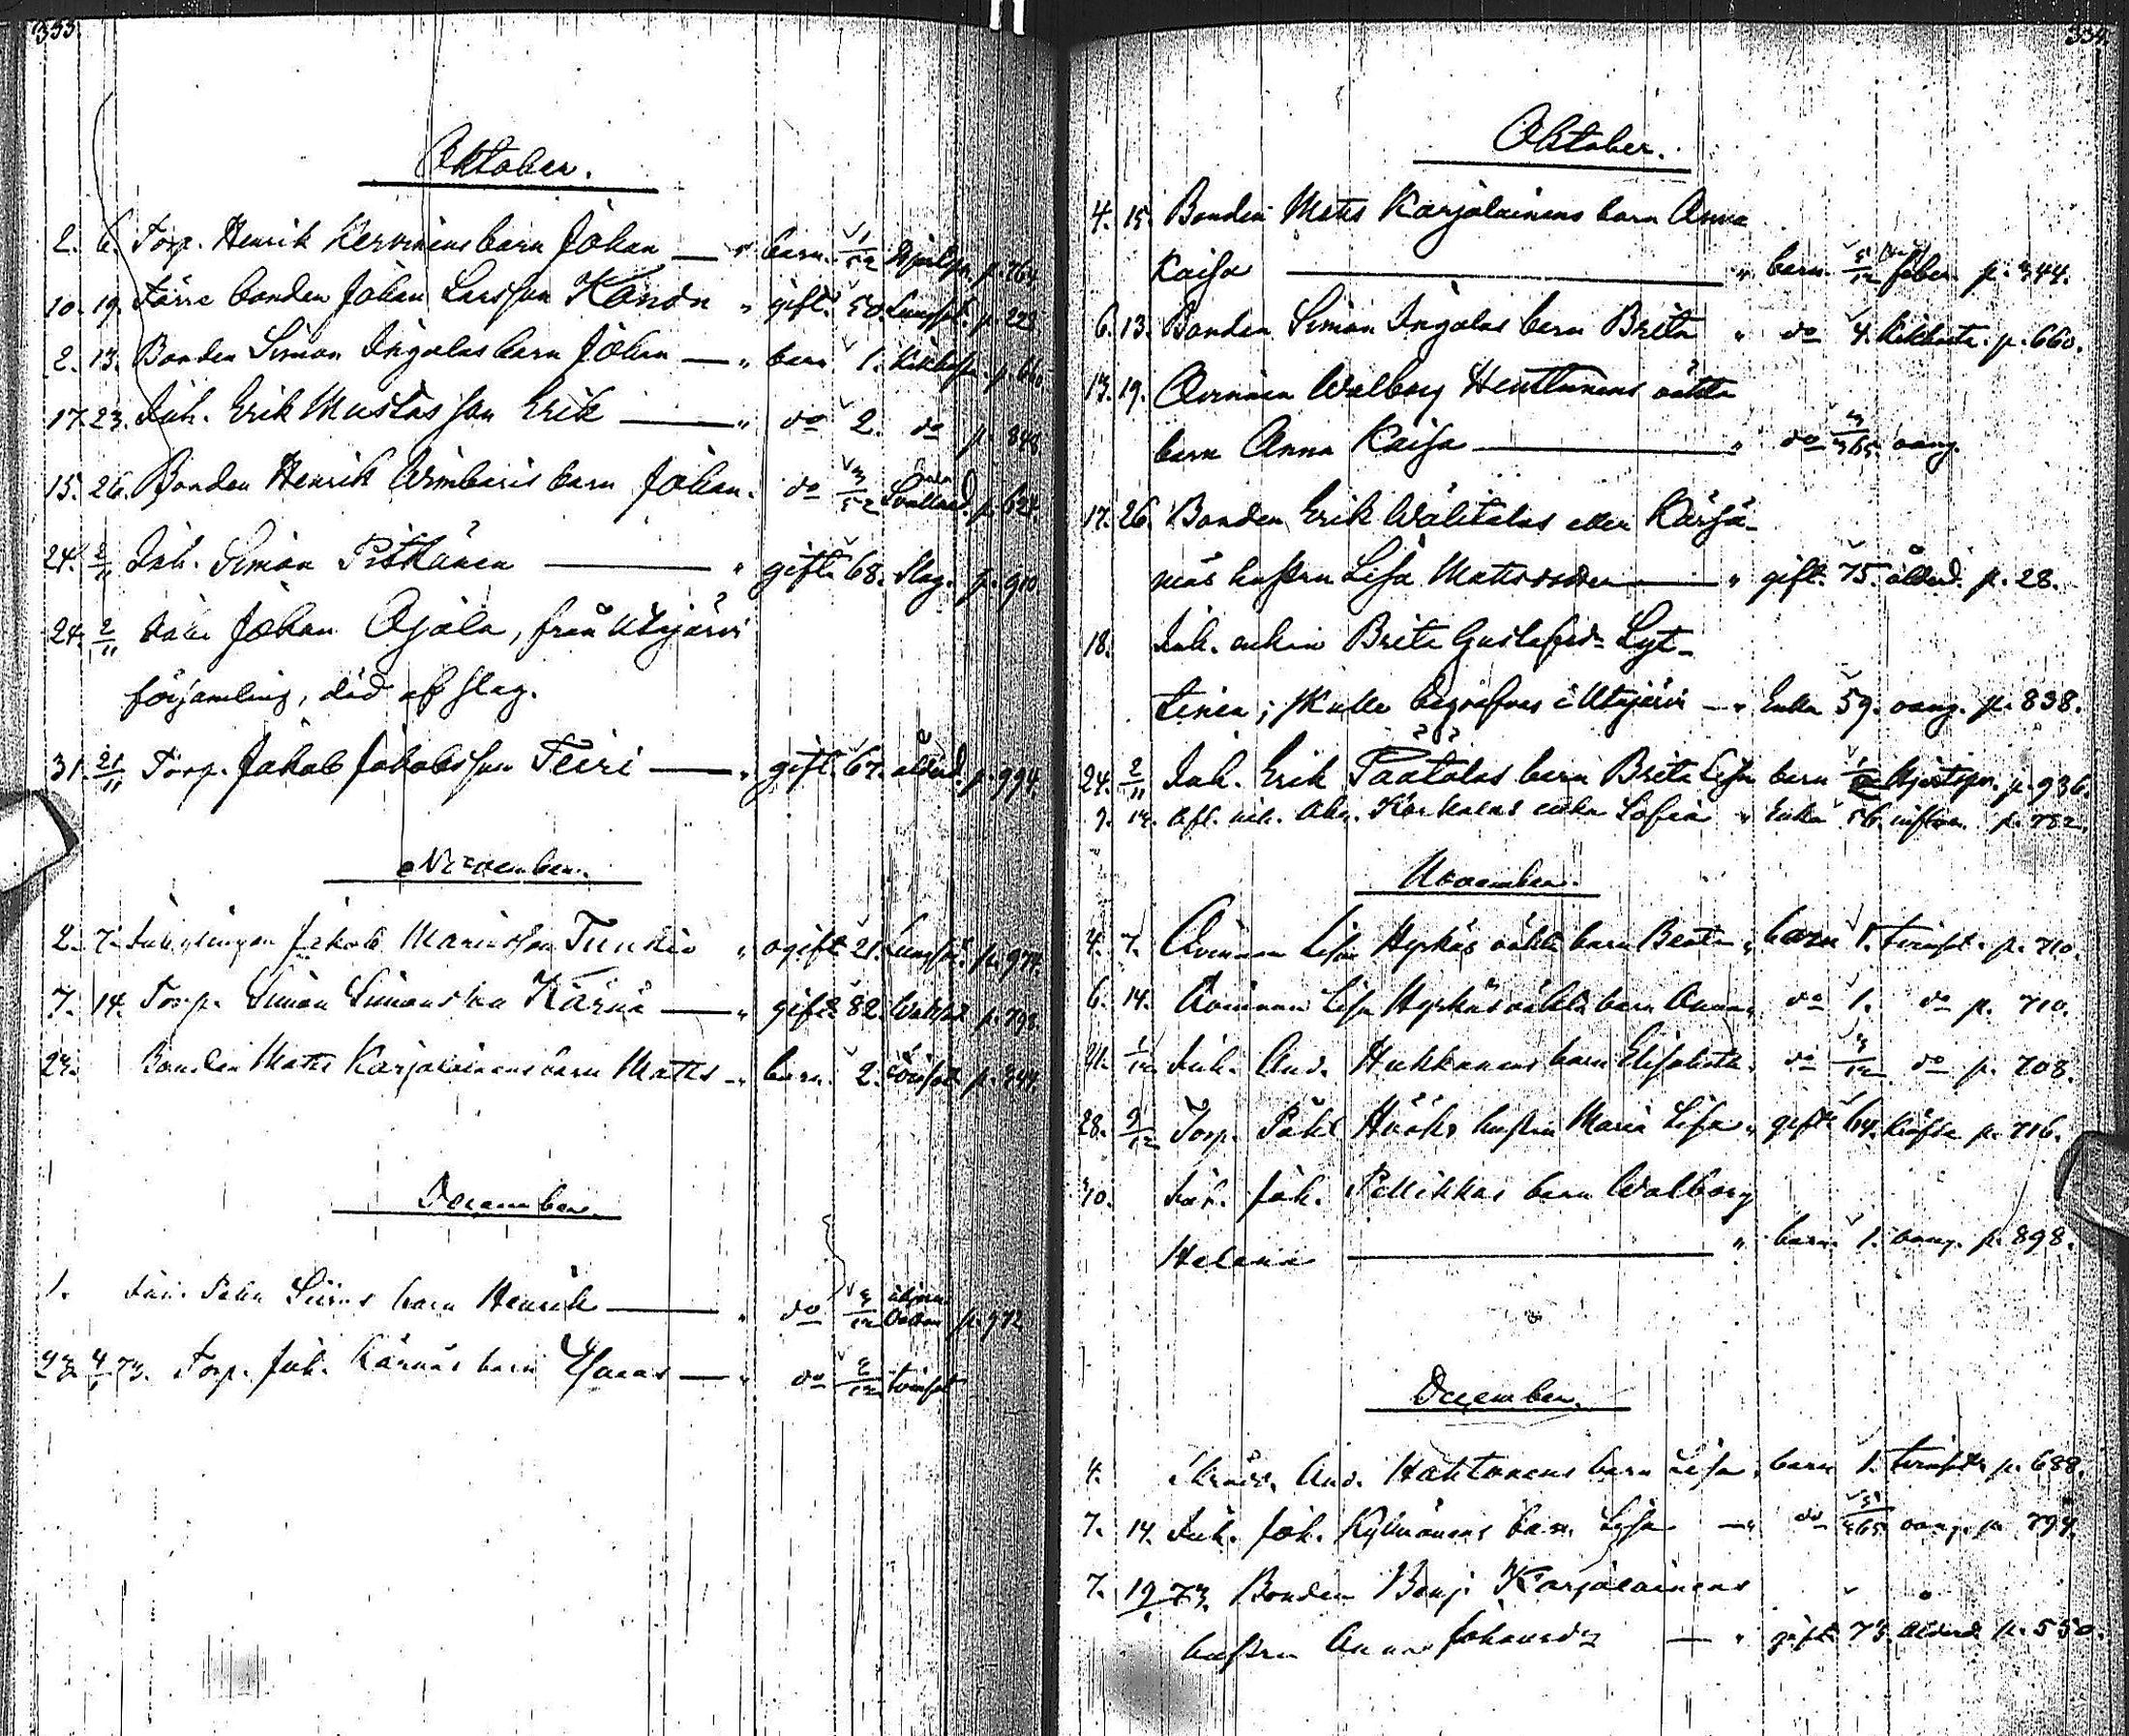 333.
Oktober.
2. 6. Torp. Henrik Kervinens barn Johan — " barn 1/52 p. 764
10. 19. Förre bonden Johan Larsson " gift 50. Lungsot. p. 222
2. 13. Bonden Simon Ingalas barn Johan — " barn 1. Kikhosta p. 660
17. 23. Inh. Erik Mustas son Erik — " do 2. do p. 848
15. 26. Bonden Henrik barn Johan. do 3/52 p. 624.
24. 2/11 Inh. Simon Pitkänen — " gift 68. slag. p. 910
24. 2/11 Johan Ojala, från Utajärvi
församling, död af slag.
31. 21/11 Torp. Jakob Jakobsson Teiri — " gift 67. ålderd. p. 994.
November.
2. 7. Ynglingen Jakob Mariasson " ogift 21. Lungsot. p. 974.
7. 14. Torp. Simon Simonsson Kärnä — " gift 82. Wattsot p. 798
23. Bonden Matts Karjalainens barn Matts — " barn 2. tvinsot p. 344.
December.
1. barn Henrik — " do p. 972
23. 4/1 73. Torp. Joh. Kärnäs barn Esaias — " do 2/12 tvinsot
334.
Oktober.
4. 15. Bonden Matts Karjalainens barn Anna
Kaisa — " barn feber p. 344.
6. 13. Bonden Simon Ingalas barn Brita " do 4. Kikhosta. p. 660.
13. 19. Qvinnan Walborg Henttunens oäkta
barn Anna Kaisa — " do 3/365 oang.
17. 26. Bonden Erik Wälitalos eller
hustru Lisa Mattsdotter — " gift. 75. ålderd. p. 28.
18. Inh. enkan Brita Gustafsdr Lyt-
tinen; skulle begrafvas i Utajärvi — " Enka 59. oang. p. 838.
24. 2/11 Inh. Erik Päätalos barn Brita Lisa barn p. 936.
7. 14. Afl. inh. Abr. Korkalas enka Sofia " Enka 56. p. 782.
November.
4. 7. Qvinnan Lisa Hyrkäs oäkta barn Beata " barn 1. tvinsot. p. 710.
6. 14. Qvinnan Lisa Hyrkäs oäkta barn Anna " do 1. do p. 710.
21. 1/12 Inh. And. Hukkanens barn Elisabeth " do 3/12 do p. 708.
28. 9/12 Torp. Påhl Hööks hustru Maria Lisa " gift 64. kräfta p. 716.
30. Inh. Joh. Pellikkas barn Walborg
Helena — " barn 1. oang. p. 898.
December.
4. And. Hahtonens barn Lisa " barn 1. tvinsot p. 688.
7. 14. Inh. Joh. Kylmänens barn Lisa — " do 5/365 oang. p. 794.
7. 19/1 73. Bonden Benj. Karjalainens
hustru Anna Johansdr — " gift 73. ålderd. p. 550.